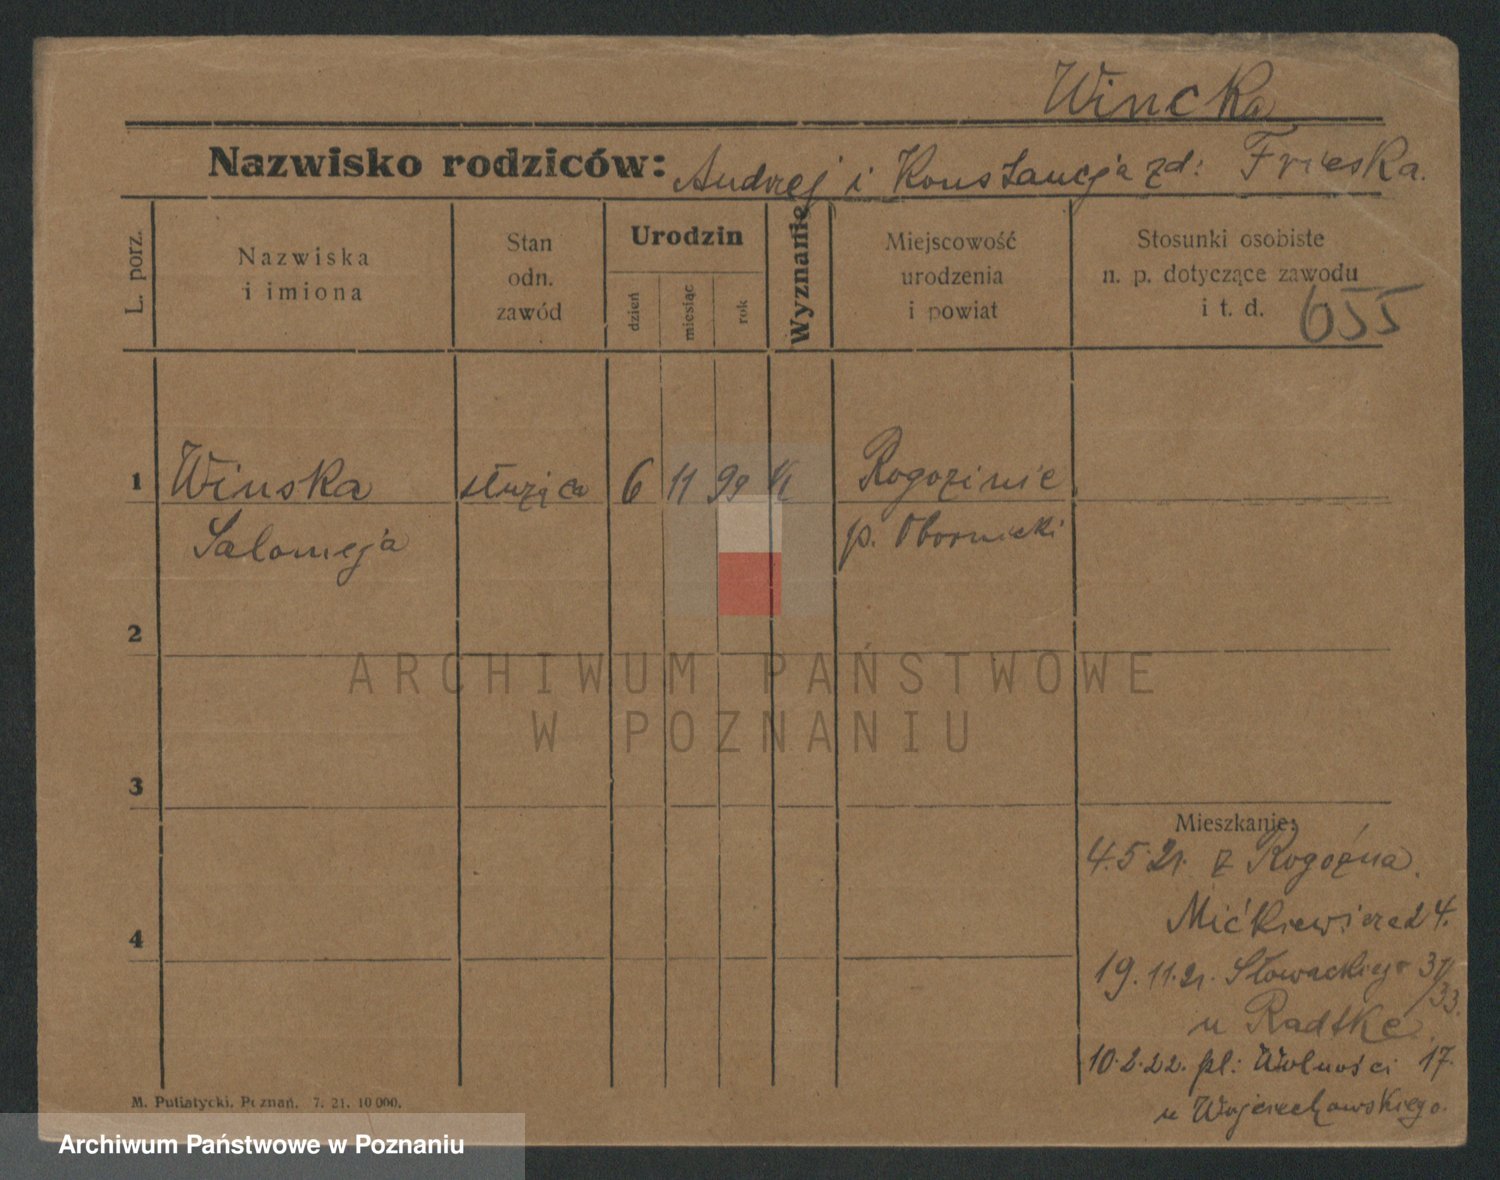 Wincka
Nazwisko rodziców: Andrzej i Konstancja zd: Frieska.
L. porz.
Nazwiska
i imiona
Stan
odn.
zawód
Urodzin
dzień
miesiąc
rok
Wyznanie
Miejscowość
urodzenia
i powiat
Stosunki osobiste
n. p. dotyczące zawodu
i t. d.
655
1 Winska służąca 6 11 99 k Rogozinie
Salomeja p. Obornicki
2
3
4
Mieszkanie:
4.5.21. z Rogoźna.
Mićkiewicza 24.
19.11.21. Słowackiego 31/33.
u Radtke.
10.2.22. pl: Wolności 17.
u Wojciechowskiego.
M. Putiatycki. Poznań. 7. 21. 10 000.
ARCHIWUM PAŃSTWOWE
W POZNANIU
Archiwum Państwowe w Poznaniu